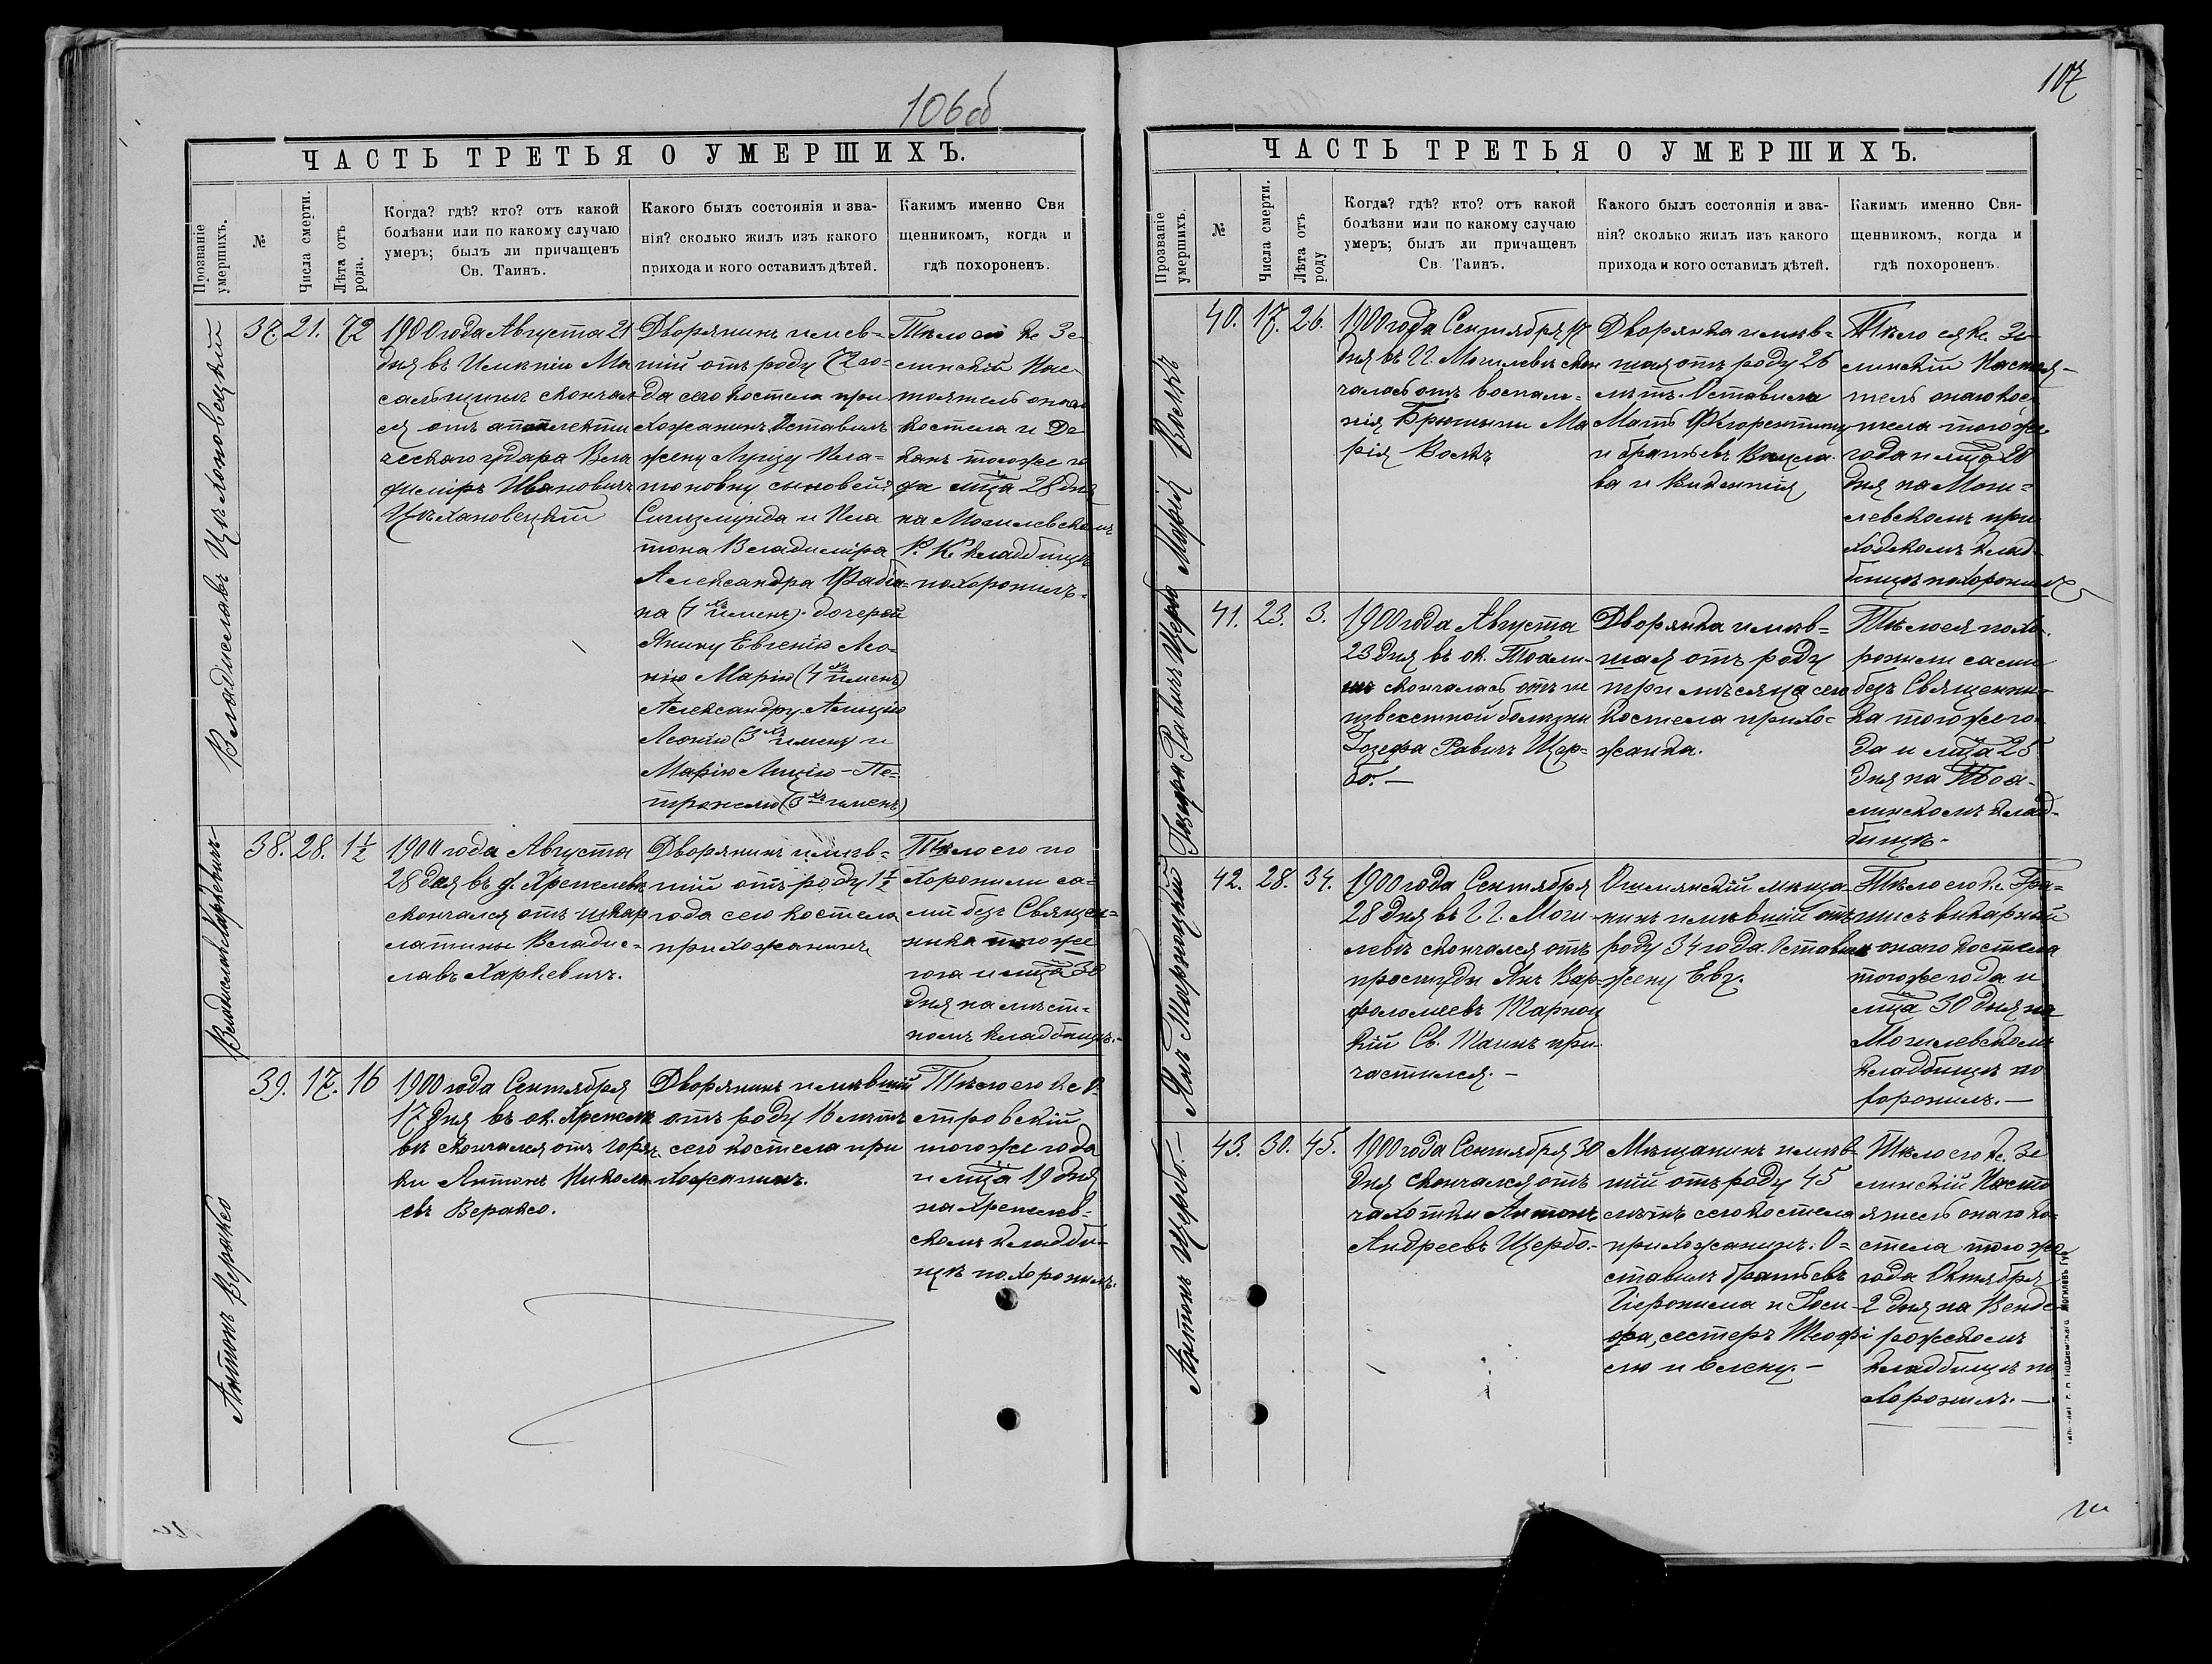 106об
ЧАСТЬ ТРЕТЬЯ О УМЕРШИХЪ.
Прозваніе умершихъ.
№
Числа смерти.
Лѣта отъ рода.
Когда? гдѣ? кто? отъ какой
болѣзни или по какому случаю
умеръ; былъ ли причащенъ
Св. Таинъ.
Какого былъ состоянія и зва-
нія? сколько жилъ изъ какого
прихода и кого оставилъ дѣтей.
Какимъ именно Свя
щенникомъ, когда и
гдѣ похороненъ.
Владиславъ Цѣхановецкій
37.
21.
72
1900 года Августа 21
дня въ Имѣніи Ма
сальщинѣ скончал
ся отъ апоплекти
ческаго удара Вла
диміръ Ивановичъ
Цѣхановецкій
Дворянинъ имѣв-
шій отъ роду 72 го-
да сего костела при
хожанинъ Оставилъ
жену Луизу Пла-
тоновну сыновей:
Сигизмунда и Пла
тона Владиміра
Александра Фабіа-
на (4хъ именъ). дочерей
Янину Евгенію Ме-
нію Марію (4хъ именъ)
Александру Алицію
Леонію (3хъ именъ) и
Марію Луцію-Пе-
тронелю (3хъ именъ)
Тѣло его Кс Зе
линскій Нас
тоятель онаго
костела и Де
канъ тогоже го
да мца 28 дня
на Могилевскомъ
Р. К. кладбищѣ
похоронилъ.
Владиславъ Харкевичъ
38.
28.
1½
1900 года Августа
28 дня въ ф. Хрепелевѣ
скончался отъ шкар
латины Владис-
лавъ Харкевичъ.
Дворянинъ имѣв-
шій отъ роду 1½
года сего костела
прихожанинъ
Тѣло его по
хоронили са-
ми безъ Священ-
ника тогоже
года и мца 30
дня на мѣст-
номъ кладбищѣ.-
Антонъ Верако
39.
17.
16
1900 года Сентября
17 дня въ ок. Хрепеле
вѣ скончался отъ горяч
ки Антонъ Никола
евъ Верако.
Дворянинъ имѣвшій
отъ роду 16 лѣтъ
сего костела при
хожанинъ.
Тѣло его Кс О-
стровскій
тогоже года
и мца 19 дня
на Хрепелев-
скомъ кладби-
щѣ похоронилъ.
107
ЧАСТЬ ТРЕТЬЯ О УМЕРШИХЪ.
Прозваніе умершихъ.
№
Числа смерти.
Лѣта отъ роду
Когда? гдѣ? кто? отъ какой
болѣзни или по какому случаю
умеръ; былъ ли причащенъ
Св. Таинъ.
Какого былъ состоянія и зва-
нія? сколько жилъ изъ какого
прихода и кого оставилъ дѣтей.
Какимъ именно Свя-
щенникомъ, когда и
гдѣ похороненъ.
Марія Волкъ
40.
17.
26.
1900 года Сентября 17
дня въ Г. Могилевѣ скон
чалась отъ воспале-
нія Брюшины Ма
рія Волкъ
Дворянка имѣв-
шая отъ роду 26
лѣтъ. Оставила
Мать Флорентину
и братьевъ Вацла
ва и Викентія
Тѣло ея Кс. Зе
линскій Настоя-
тель онаго кос
тела тогоже
года и мца 20
дня на Моги-
левскомъ при
ходскомъ клад
бищѣ похоронилъ
Іозефа Равичъ Щербо
41.
23.
3.
1900 года Августа
23 дня въ ок. Тоали-
нѣ скончалась отъ не
извѣстной болѣзни
Іозефа Равичъ Щер-
бо.-
Дворянка имѣв-
шая отъ роду
три мѣсяца сего
костела прихо-
жанка.
Тѣло ея похо-
ронили сами
безъ Священни-
ка тогоже го-
да и мца 25
дня на Тоа-
линскомъ клад-
бищѣ.
Янъ Тарноцкій
42.
28.
34.
1900 года Сентября
28 дня въ Г. Г. Моги-
левѣ скончался отъ
простуды Янъ Вар-
фоломеевъ Тарноц
кій Св. Таинъ при-
частился.-
Ошмянскій мѣща-
нинъ имѣвшій отъ
роду 34 года. Оставилъ
жену Еву.
Тѣло его Кс. Гра-
лисъ викарный
онаго костела
тогоже года и
мца 30 дня на
Могилевскомъ
кладбищѣ по
хоронилъ.-
Антонъ Щербо.-
43.
30.
45.
1900 года Сентября 30
дня скончался отъ
чахотки Антонъ
Андреевъ Щербо.-
Мѣщанинъ имѣв-
шій отъ роду 45
лѣтъ сего костела
прихожанинъ. О-
ставилъ братьевъ
Іеронима и Іоси-
фа, сестеръ Теофі
лю и Елену.-
Тѣло его Кс. Зе
линскій Насто
ятель онаго ко-
стела тогоже
года Октября
2 дня на Венде
рожскомъ
кладбищѣ по
хоронилъ.-